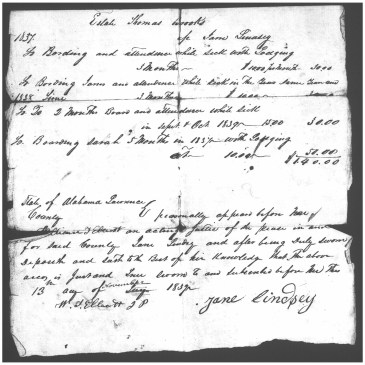 Estate Thomas Brooks
1837 To Jane Lindsey
To Bording and attendence while sick with Lodging
3 Months
To Bording James and attendence while sick in the same time and
1838 June 3 Months
To To 2 Months Board and attendence while sick
in Sept & Oct 1839 15.00 30.00
To Boarding Sarah 5 Months in 1837 with Lodging
at 10.00 50.00
$140.00
State of Alabama
County personally appears before me
an acting Justice of the peace in and
for said County Jane Lindsey and after being duly sworn
Deposeth and saith to the Best of her Knowledge that the above
acct is Just and True sworn to and subscribed before me This
13th day of 1839
W. J. Elliott J P Jane Lindsey